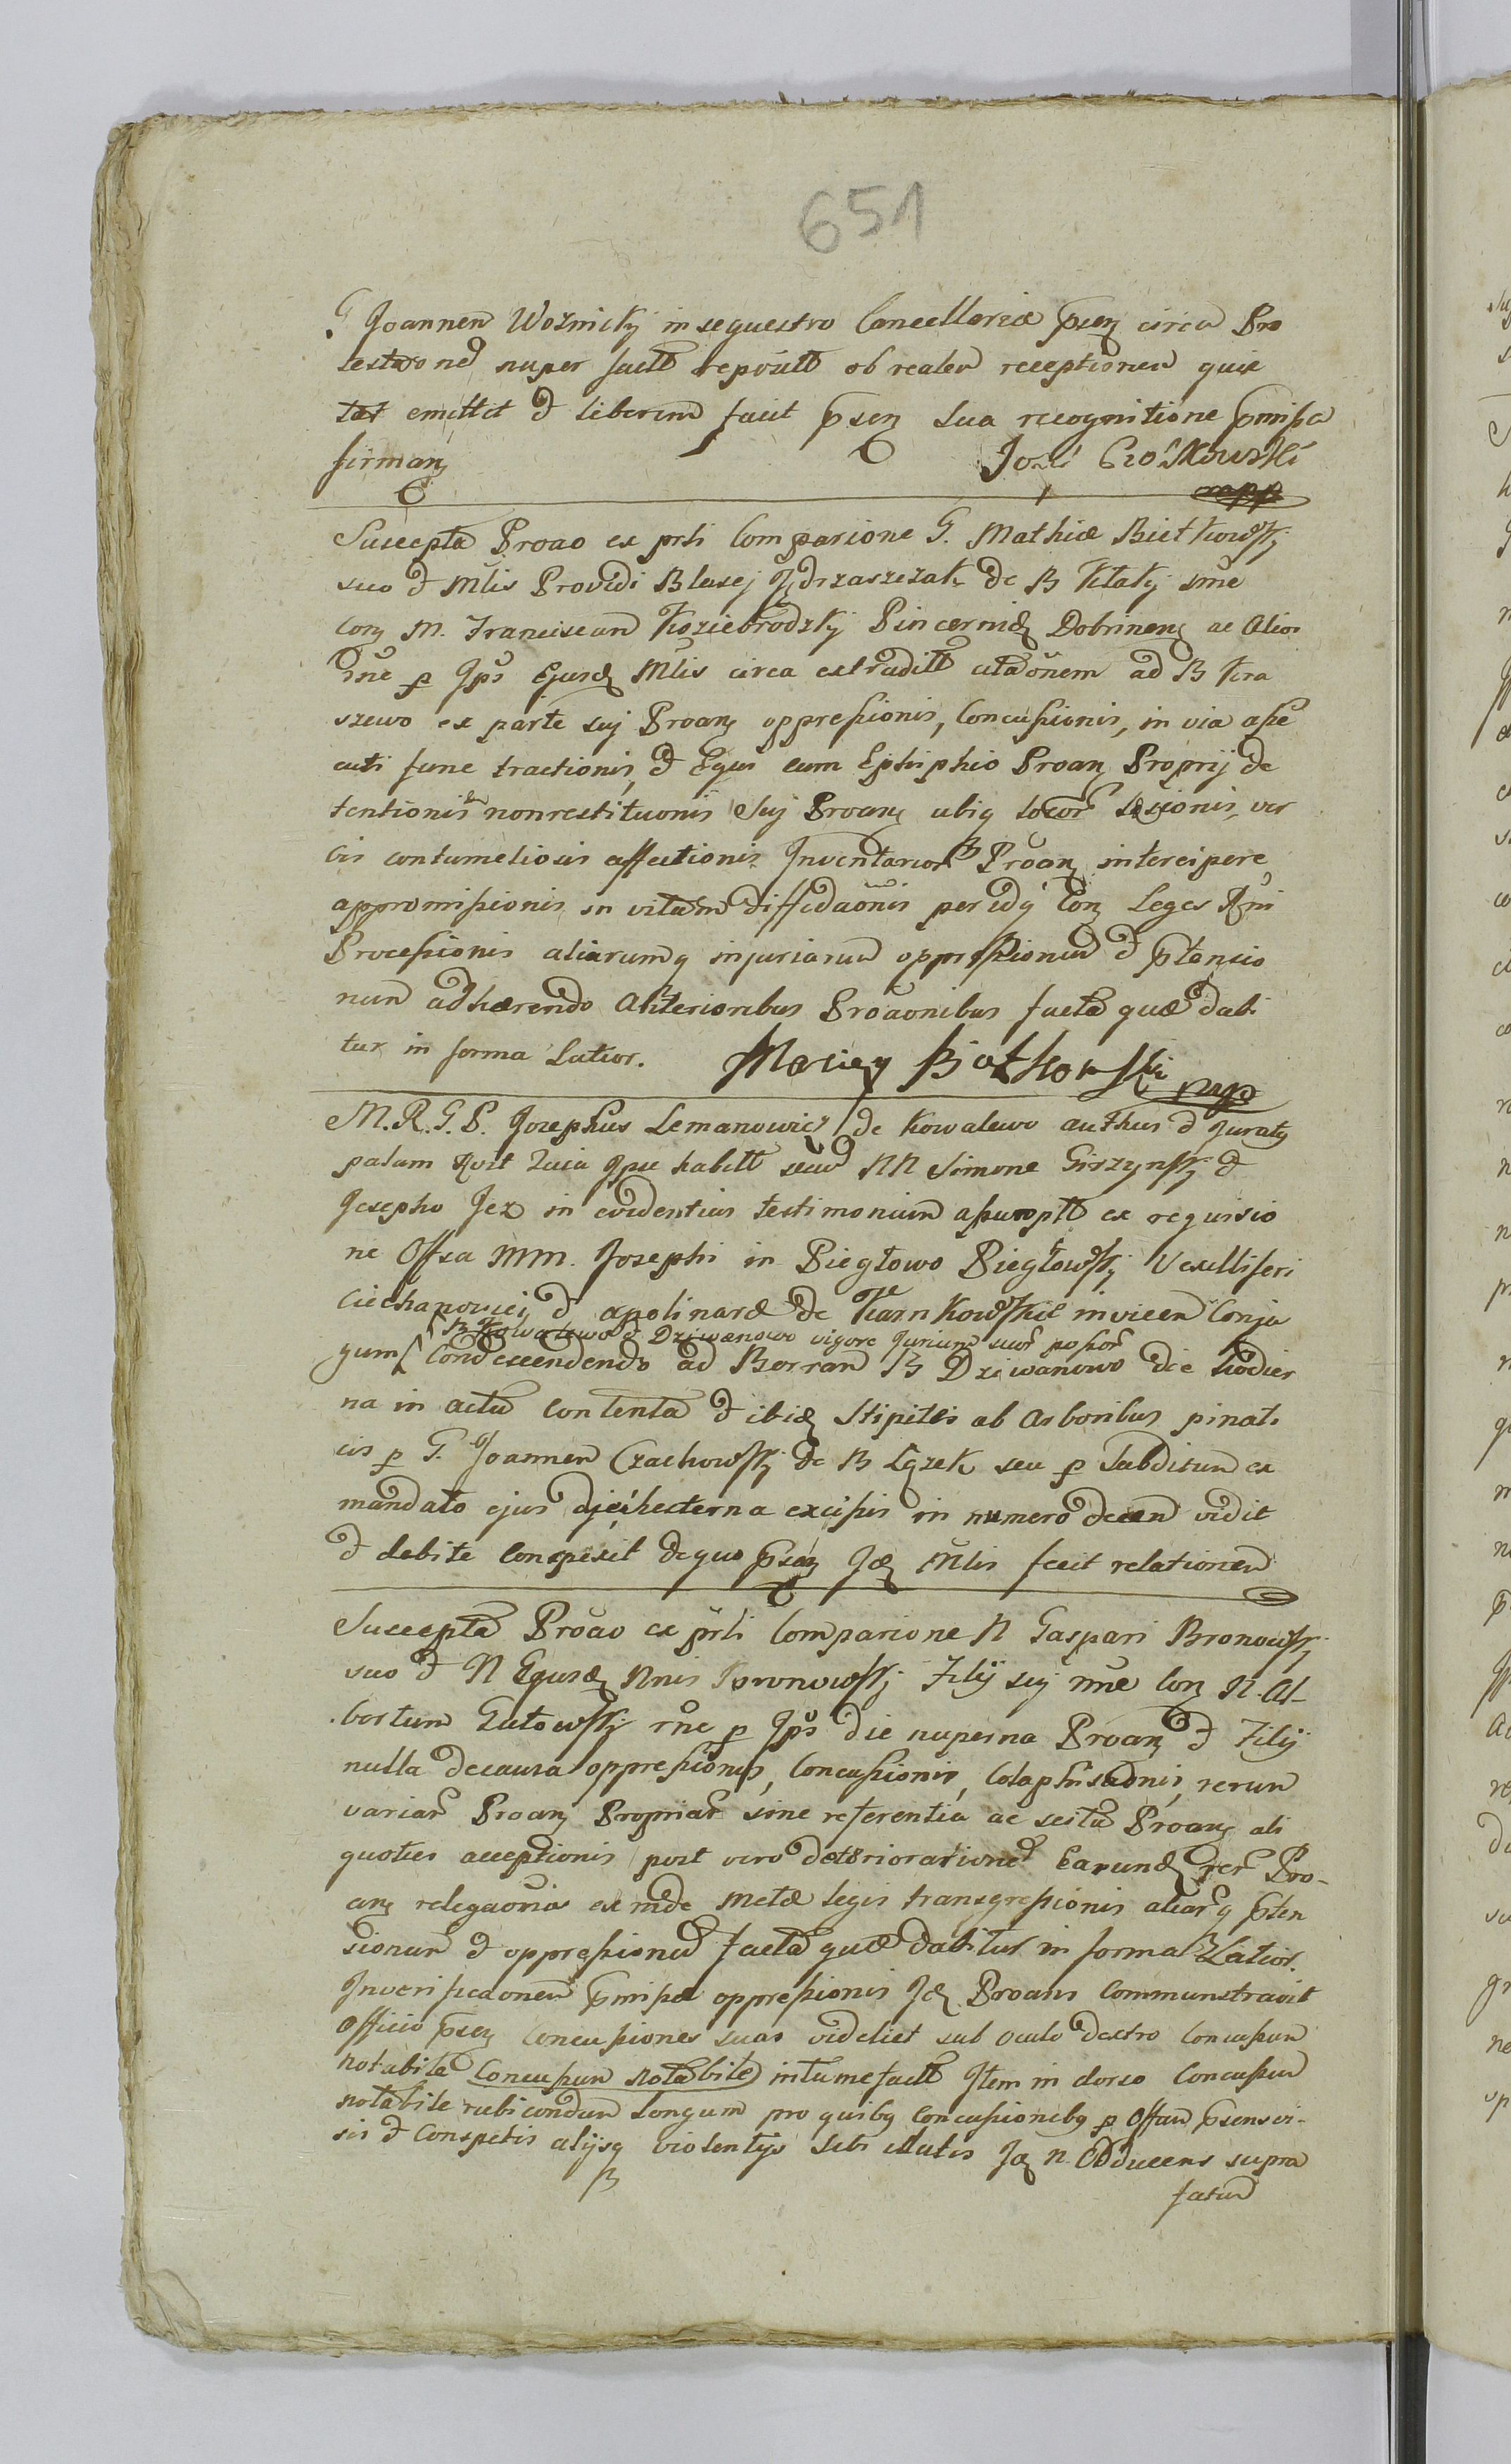 651
G Joannem Woźnicky in sequestro Cancellariæ pseñ circa Pro
testaonẽ nuper factt reposłtt ob realem receptionem quie
tat emittit et liberum facit pseñ sua recognitione pmissa
firmañ
Suscepta Proao ex prti Comparione G. Mathiæ Bietkowsky
suo et Mlis Providi Blasej Jędrzaszczak de B Kłaky nne
Coñ M. Franciscum Koziebrodzky Pincernã Dobrinenę ac Alior
rne p Jps Ejusdę Mlis circa extraditt citaõnem ad B Kra
szewo ex parte suj Proanę oppressionis, Concussionis, in via asse
cuti fune tractionis, et Equi cum Ephiphio Proanę Proprij de
tentionis nonrestituonis suj Proanę ubiq locor lesionis, ver
bis contumeliosis affectionis Inventarior Proanę intercipere
appromissionis in vitam diffidaõnis per idq Coñ Leges Rni
Processionis aliarumq injuriarum oppressionum et ptensio
num adhærendo Anterioribus Proaonibus facta quæ dabi
tur in forma Latior. Maciey Bietkowski mpp
M.R.G.P. Josephus Lemanowicz de Kowalewo authus et juraty
palam Rort quia Ipse habitt secum NN Simone Girzynsky et
Josepho Jez in evidentius testimonium assumptt ex requisio
ne Offsa MM. Josephi in Piegłowo Piegłowsky Vexilliferi
Ciechanovien et Apolinaræ de Karnkowskie invicem Conju
B Kowalewo et Dziwanowo vigore Jurium suor possor
gum Condescendendo ad Borram B Dziwanowo die hodier
na in actu contenta et ibidę Stipitis ab Arboribus pinati
cis p G. Joannem Czachowsky de B Łązek seu p Subditum ex
mandato ejus die hesterna excisis in numero decem vidit
et debite conspexit de quo pseñ Idę Mlis fecit relationem
Suscepta Proao ex prti Comparione N Gaspari Bronowsky
suo et N Ejusdę Nnis Bronowsky Filij suj nne Coñ N. Al-
bertum Gutowsky rne p Jps die nuperna Proanę et Filij
nulla de causa oppressionis, Concussionis, Colaphisaõnis, rerum
variar Proanę Propriar sine referentia ac scitu Proanę ali
quoties acceptionis post vero deteriorationẽ Earundę rer Pro-
anę relegaonis exinde metæ legis transgressionis aliarq pten
sionum et oppressionũ facta quæ dabitur in forma Latior.
Inverificaonem pmissæ oppressionis Idę Proans Communstravit
Officio pseñ Concussiones suas videliet sub oculo dextro Concussum
notabile Concussum notabile intumefactt Item in dorso Concussum
notabile rubicondum longum pro quibq Concussionibq p Offum psens vi-
sis et Conspectis alijsq violentijs sibi illatis Idę N. Adducens supra
fatum